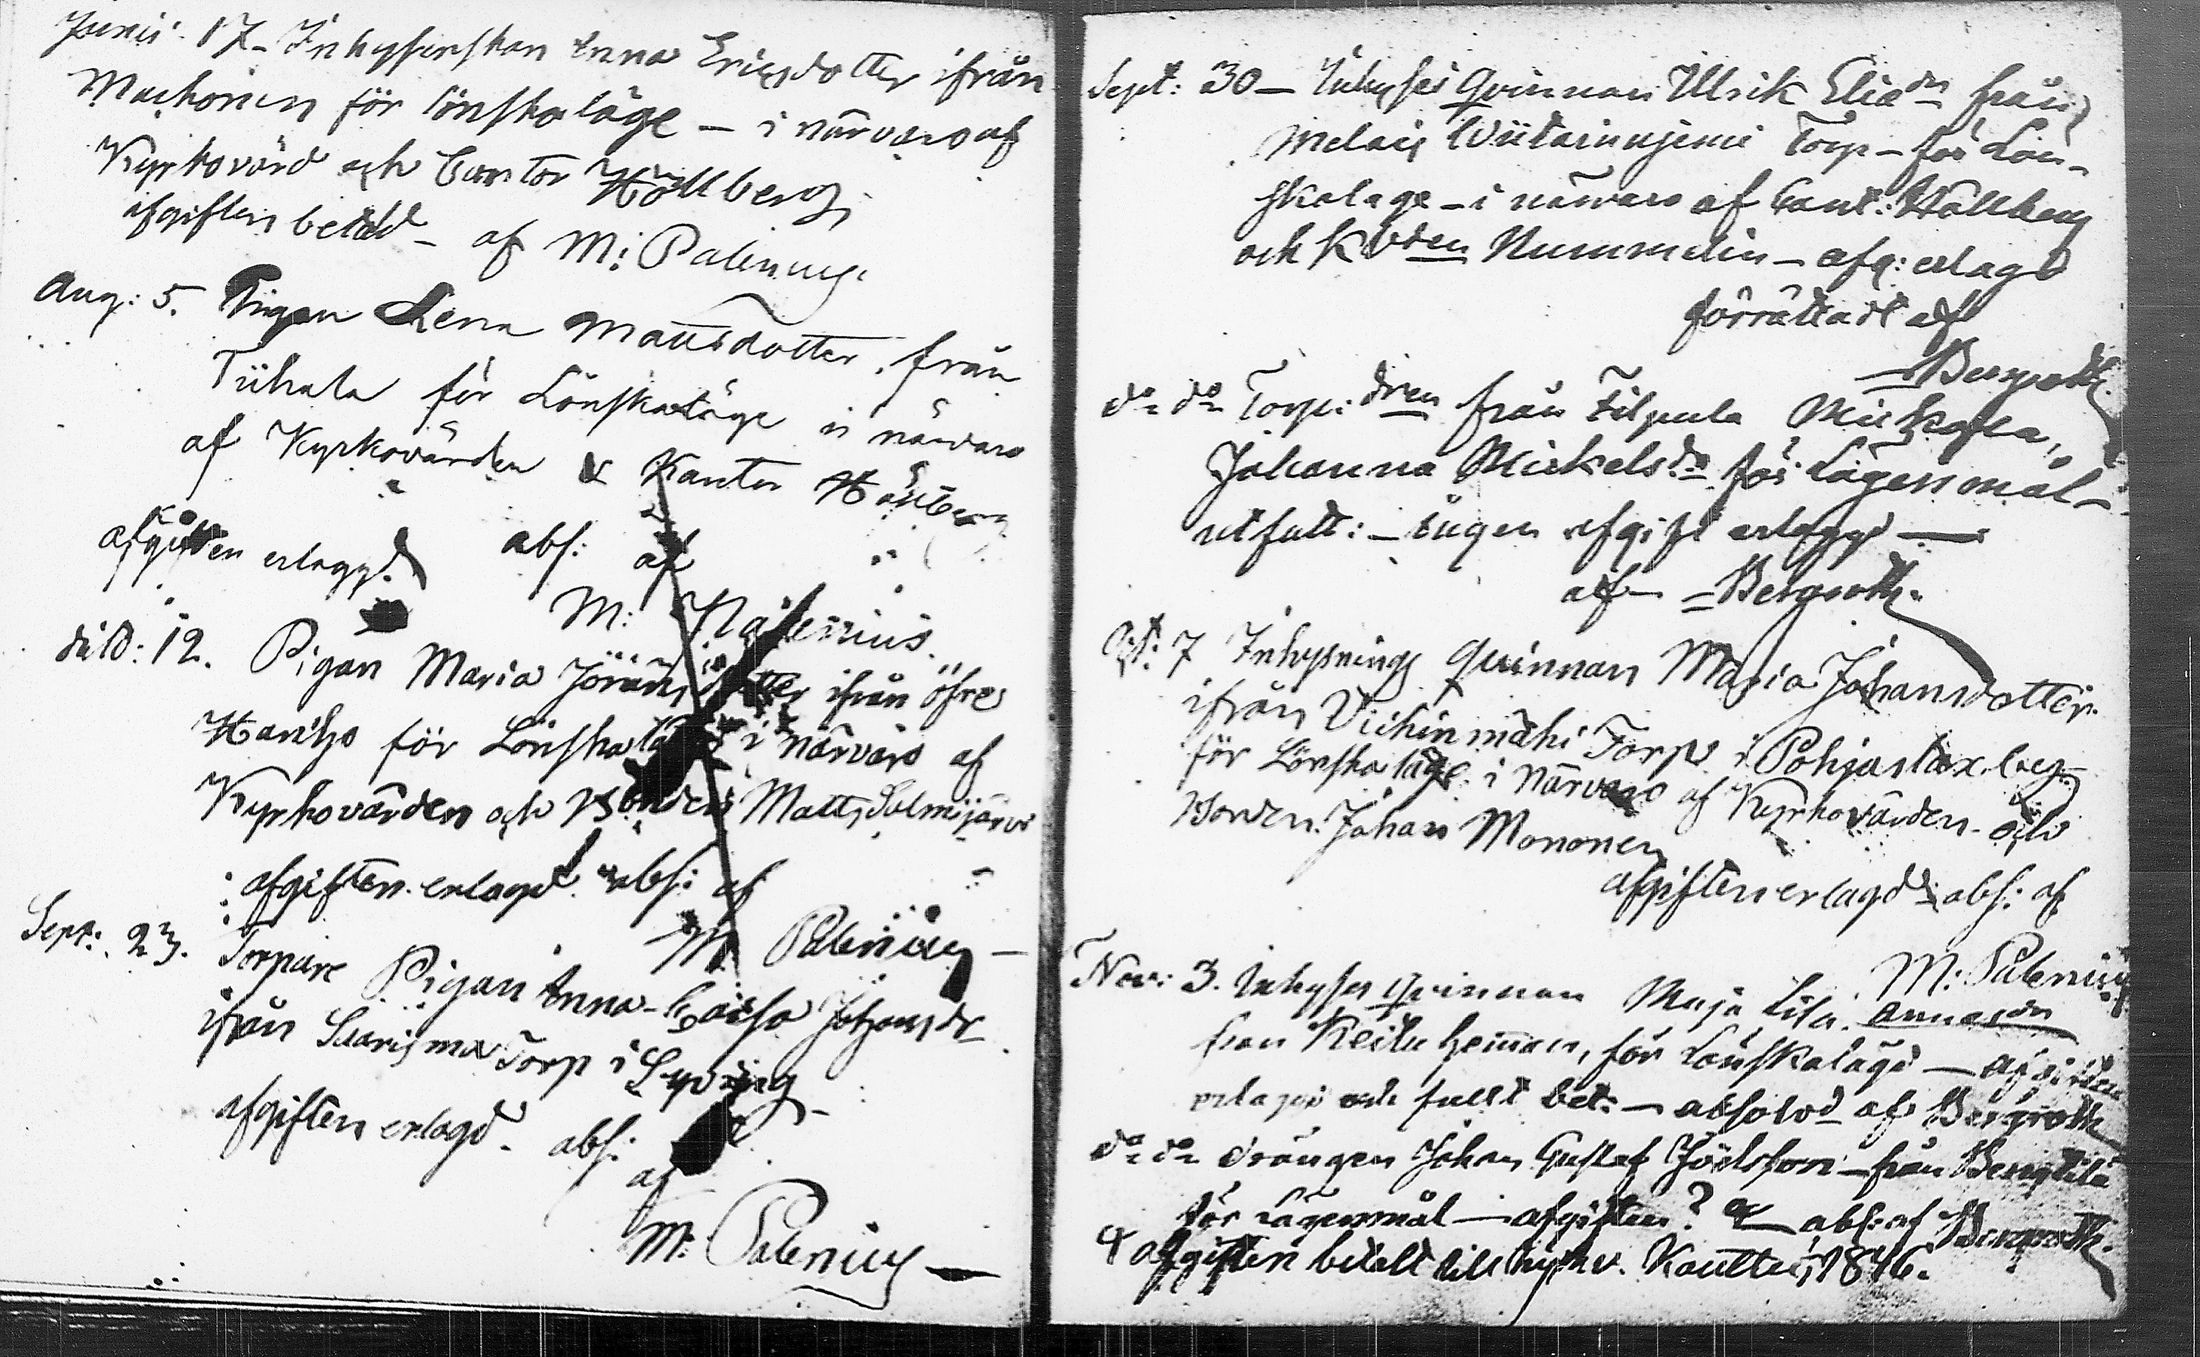 Junii 17 – Inhyserskan Anna Ericsdotter ifrån
för Lönskaläge – i närvaro af
Kyrkovärd och Cantor Hällberg,
afgiften betald – af M: Palenius.
Aug: 5. Pigan Lena Mattsdotter, från
Tiihala för Lönskaläge i närvaro
af Kyrkovärden & Kantor Hällberg
afgiften erlaggd. abs: af
M: Palenius.
dito: 12. Pigan Maria Jöransdotter ifrån öfre
för Lönskaläge i närvaro af
Kyrkovärden och Bonden Matts Salmijärvi
afgiften erlagd abs: af
M: Palenius –
Sept: 23. Torpare Pigan Anna-Caisa Johansdr
ifrån Saarismaa Torp i
afgiften erlagd. abs:
af
M: Palenius –
Sept: 30 – Inhyses Qvinnan Ulrik Eliadn från
Torp – för Lön-
skalage – i närvaro af Cant: Hällberg
och K vden Nummelin – afg: erlagd
förrättadt af
– Bergroth.
do do Torp: dren från Filpula
Johanna Mickelsdr för Lägersmål –
– ingen afgift erlaggd –
af – Bergroth.
7 Inhysnings Quinnan Maria Johansdotter
ifrån Torp i
för Lönskaläge i Närvaro af Kyrkovärden och
Bonden Johan Mononen
afgiften erlagd abs: af
M: Palenius
Nov: 3. Inhyses Qvinnan Maja Lisa Annasdn
från hemman, för Lönskaläge – afgiften
erlagd och fullt bet: – absolvd af Bergroth
do do Drängen Johan Gustaf Joelsson – från Bengtilä
för Lägersmål – afgiften? abs: af Bergroth.
afgiften betalt till kyrkv. 1846.